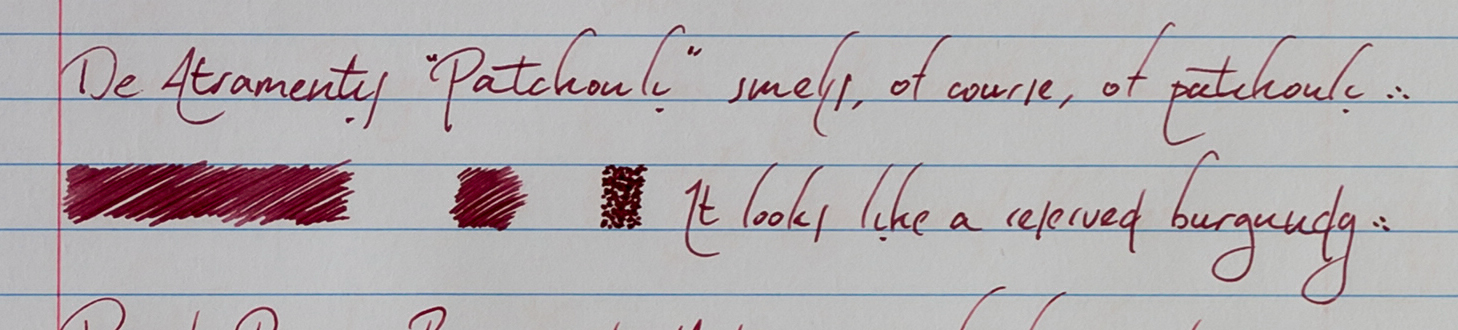 De Atramentis "Patchouli" smells, of course, of patchouli∴
It looks like a reserved burgundy∴